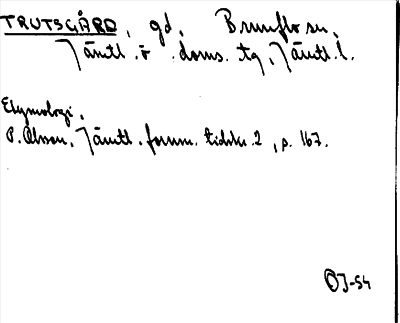 TRUTSGÅRD, gd, Brunflo sn,
Jämtl. ö. doms. tg, Jämtl. l.
Etymologi,
P. Olsson, Jämtl. fornm. tidskr. 2, p. 167.
OJ-54